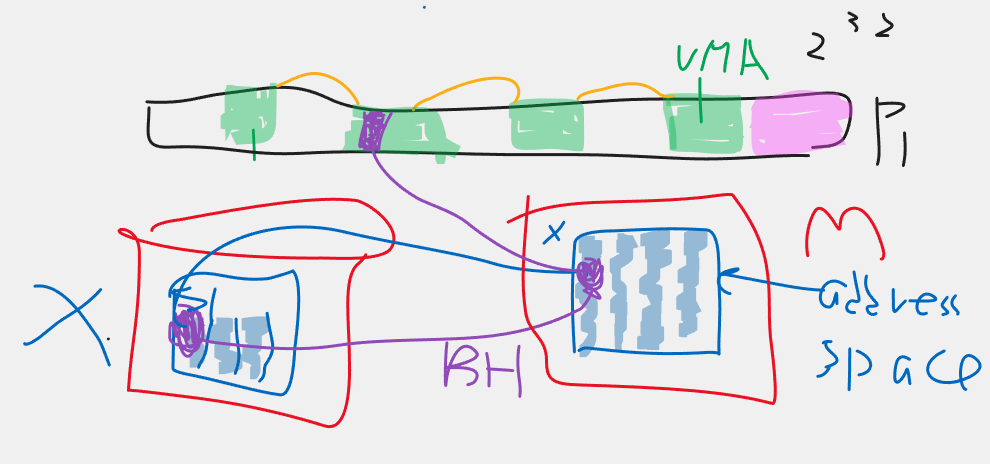 VMA
2^32
P1
X
M
X
address
space
BH